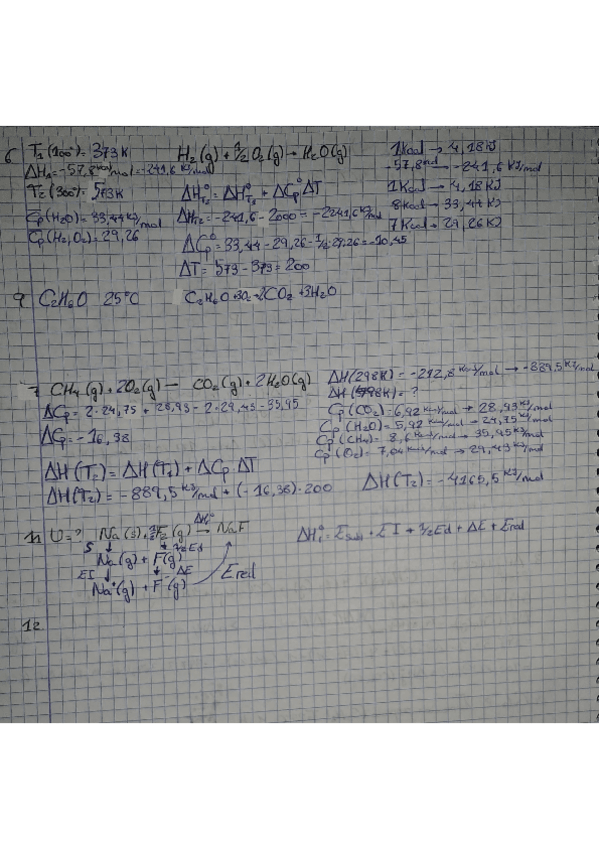 6 T₁(100°)= 373K H₂(g)+½O₂(g)→H₂O(g) 1Kcal → 4,18KJ
ΔH₁=-57,8 kcal/mol=-241,6 KJ/mol -57,8 kcal → -241,6 KJ/mol
T₂(300°)= 573K ΔH°T₂ = ΔH°T₁ + ΔCp°ΔT 1Kcal → 4,18KJ
Cp(H₂O)= 33,44 KJ/mol ΔHT₂=-241,6-2000=-2241,6 KJ/mol 8Kcal → 33,44KJ
Cp(H₂,O₂)= 29,26 7Kcal → 29,26KJ
ΔCp°=33,44-29,26-½·29,26=-10,45
ΔT= 573-373=200
9 C₂H₆O 25°C C₂H₆O+3O₂→2CO₂+3H₂O
7 CH₄(g)+2O₂(g)— CO₂(g)+2H₂O(g) ΔH(298K)=-212,8 Kcal/mol → -889,5 KJ/mol
ΔH(498K)= ?
ΔCp= 2·24,75 + 28,93-2·29,43-35,95 Cp(CO₂)=6,92 Kcal/mol → 28,93KJ/mol
Cp(H₂O)=5,92 Kcal/mol → 24,75KJ/mol
ΔCp= -16,38 Cp(CH₄)= 8,6 Kcal/mol → 35,95KJ/mol
Cp(O₂)= 7,04 Kcal/mol → 29,43 KJ/mol
ΔH(T₂)=ΔH(T₁)+ΔCp·ΔT ΔH(T₂)=-4165,5 KJ/mol
ΔH(T₂)=-889,5 KJ/mol+(-16,38)·200
11 U=? Na(s)+½F₂(g) ΔH°f→ NaF ΔH°f= Esub+EI+½Ed+ΔE+Ered
S↓ ↓½Ed
Na(g)+F(g)
EI↓ ↓ΔE
Na⁺(g)+F⁻(g) Ered
12